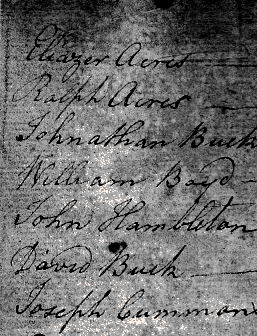 Eliazer Acres
Ralph Acres
Johnathan Buck
William Boyd
John Hambleton
David Buck
Joseph Cumman